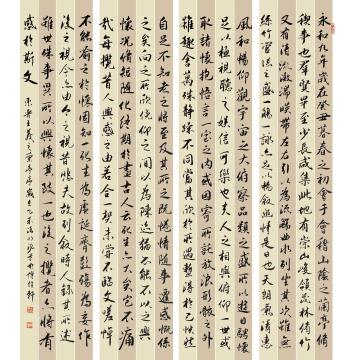 永和九年歲在癸丑暮春之初會于會稽山陰之蘭亭脩
禊事也群賢畢至少長咸集此地有崇山峻領茂林脩竹
又有清流激湍暎帶左右引以為流觴曲水列坐其次雖無
絲竹管弦之盛一觴一詠亦足以暢敘幽情是日也天朗氣清惠
風和暢仰觀宇宙之大俯察品類之盛所以遊目騁懷
足以極視聽之娛信可樂也夫人之相與俯仰一世或
取諸懷抱悟言一室之內或因寄所託放浪形骸之外
雖趣舍萬殊靜躁不同當其欣於所遇暫得於己快然
自足不知老之將至及其所之既惓情隨事遷感慨係
之矣向之所欣俛仰之間以為陳迹猶不能不以之興
懷況脩短隨化終期於盡古人云死生亦大矣豈不痛
哉每攬昔人興感之由若合一契未嘗不臨文嗟悼
不能喻之於懷固知一死生為虛誕齊彭殤為妄作
後之視今亦由今之視昔悲夫故列敘時人錄其所述
雖世殊事異所以興懷其致一也後之攬者亦將有
感於斯文 東晉王羲之蘭亭序